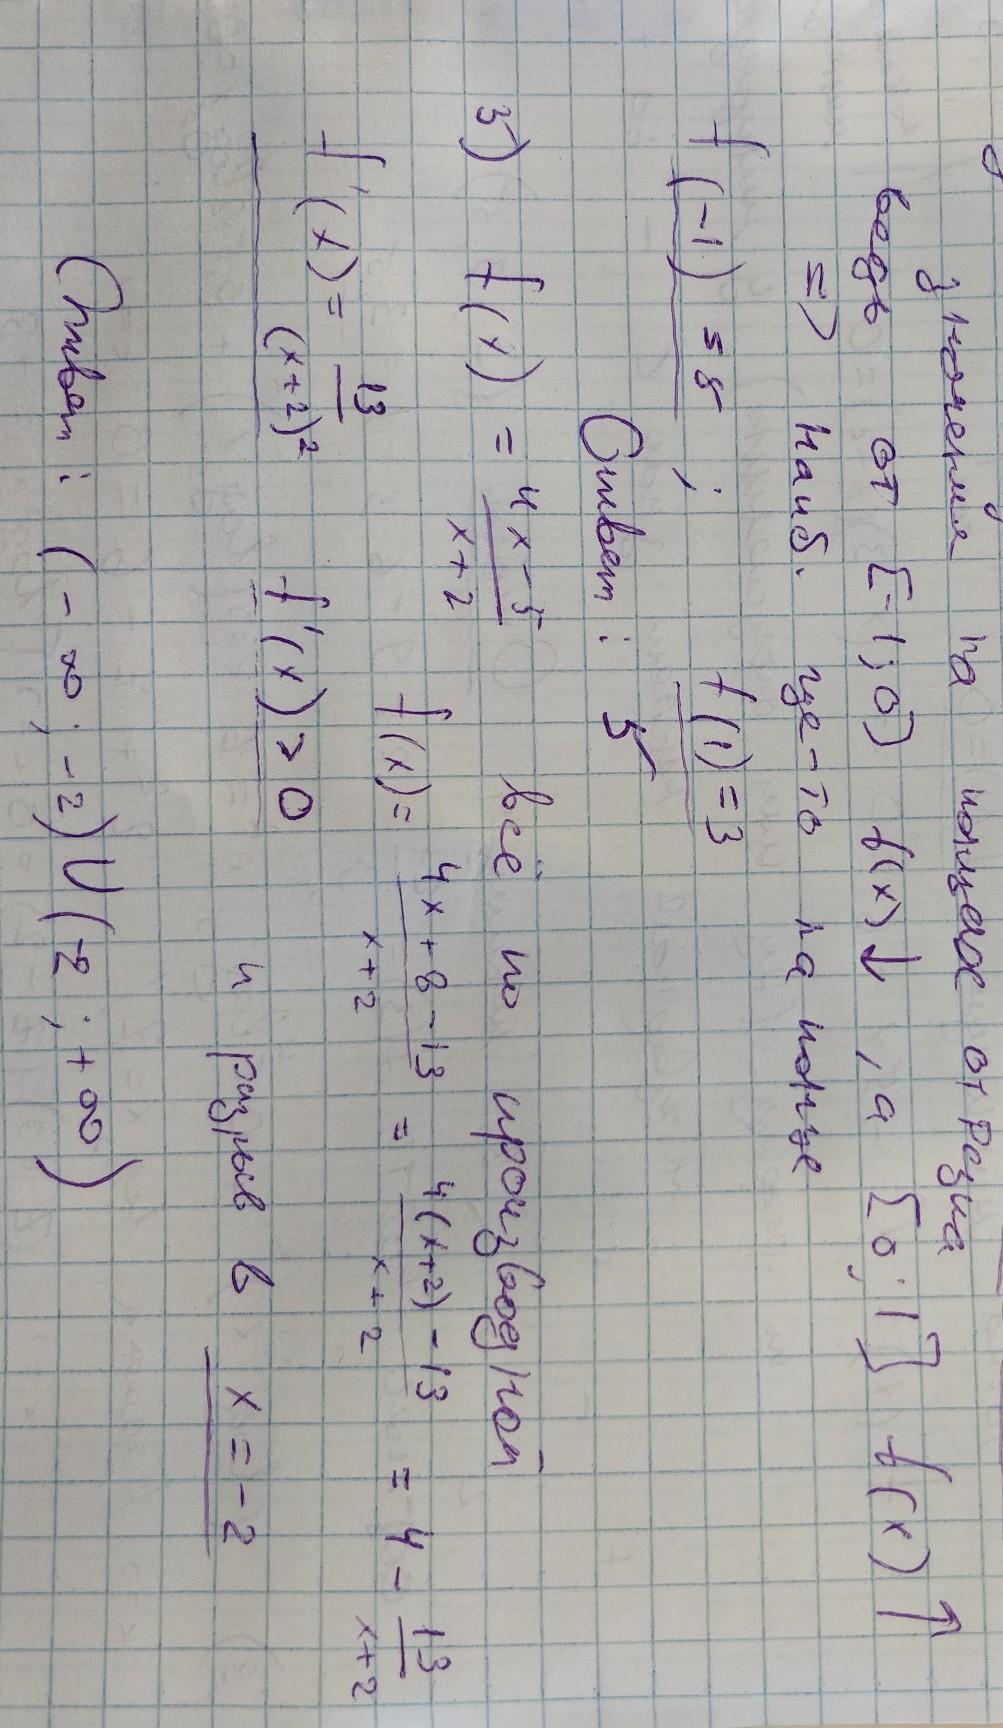 значения на концах отрезка
ведь от [-1; 0] f(x)↓, а [0; 1] f(x)↑
=> Наиб. где-то на конце
f(-1) = 5; f(1) = 3
Ответ: 5
5) f(x) = (4x-5)/(x+2) всё по производной
f(x) = (4x+8-13)/(x+2) = (4(x+2)-13)/(x+2) = 4 - 13/(x+2)
f'(x) = 13/(x+2)² f'(x) > 0 и разрыв в x = -2
Ответ: (-∞; -2)∪(-2; +∞)